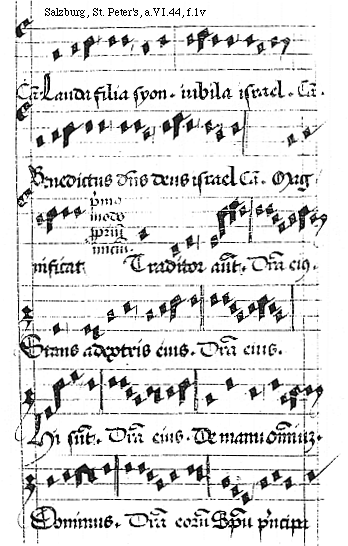 Salzburg, St. Peter's, a.VI.44, f.1v
Cā. Lauda filia syon. iubila israel. Cā.
Benedictus dn̄s deus israel Cā. Mag
pmo
modo
nificat Traditor aūt. Dr̄a eiꝰ.
Stans a dextris eius. Dr̄a eius.
Hi sūt. Dr̄a eius. De manu om̄iuꝫ.
Dominus. Dr̄a eorū Sp̄u p̄ncipi